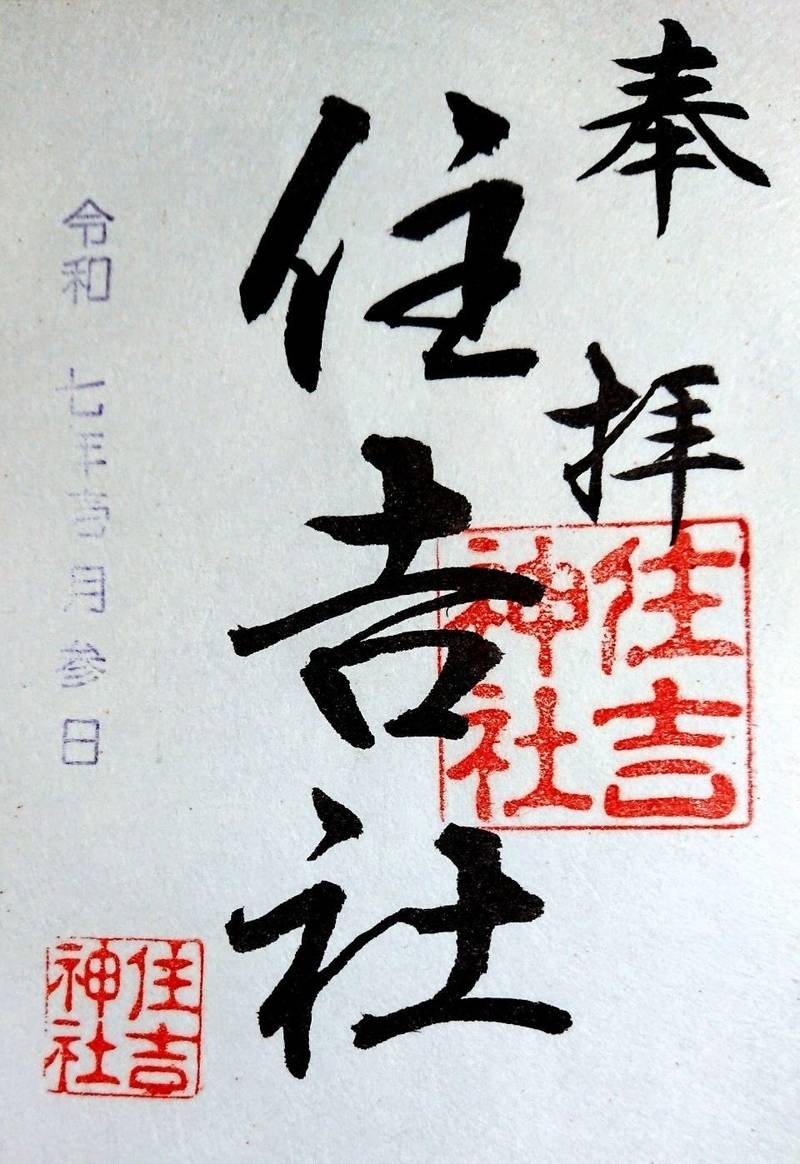 奉拝
住吉神社
住吉社
令和 七年壱月参日
住吉神社